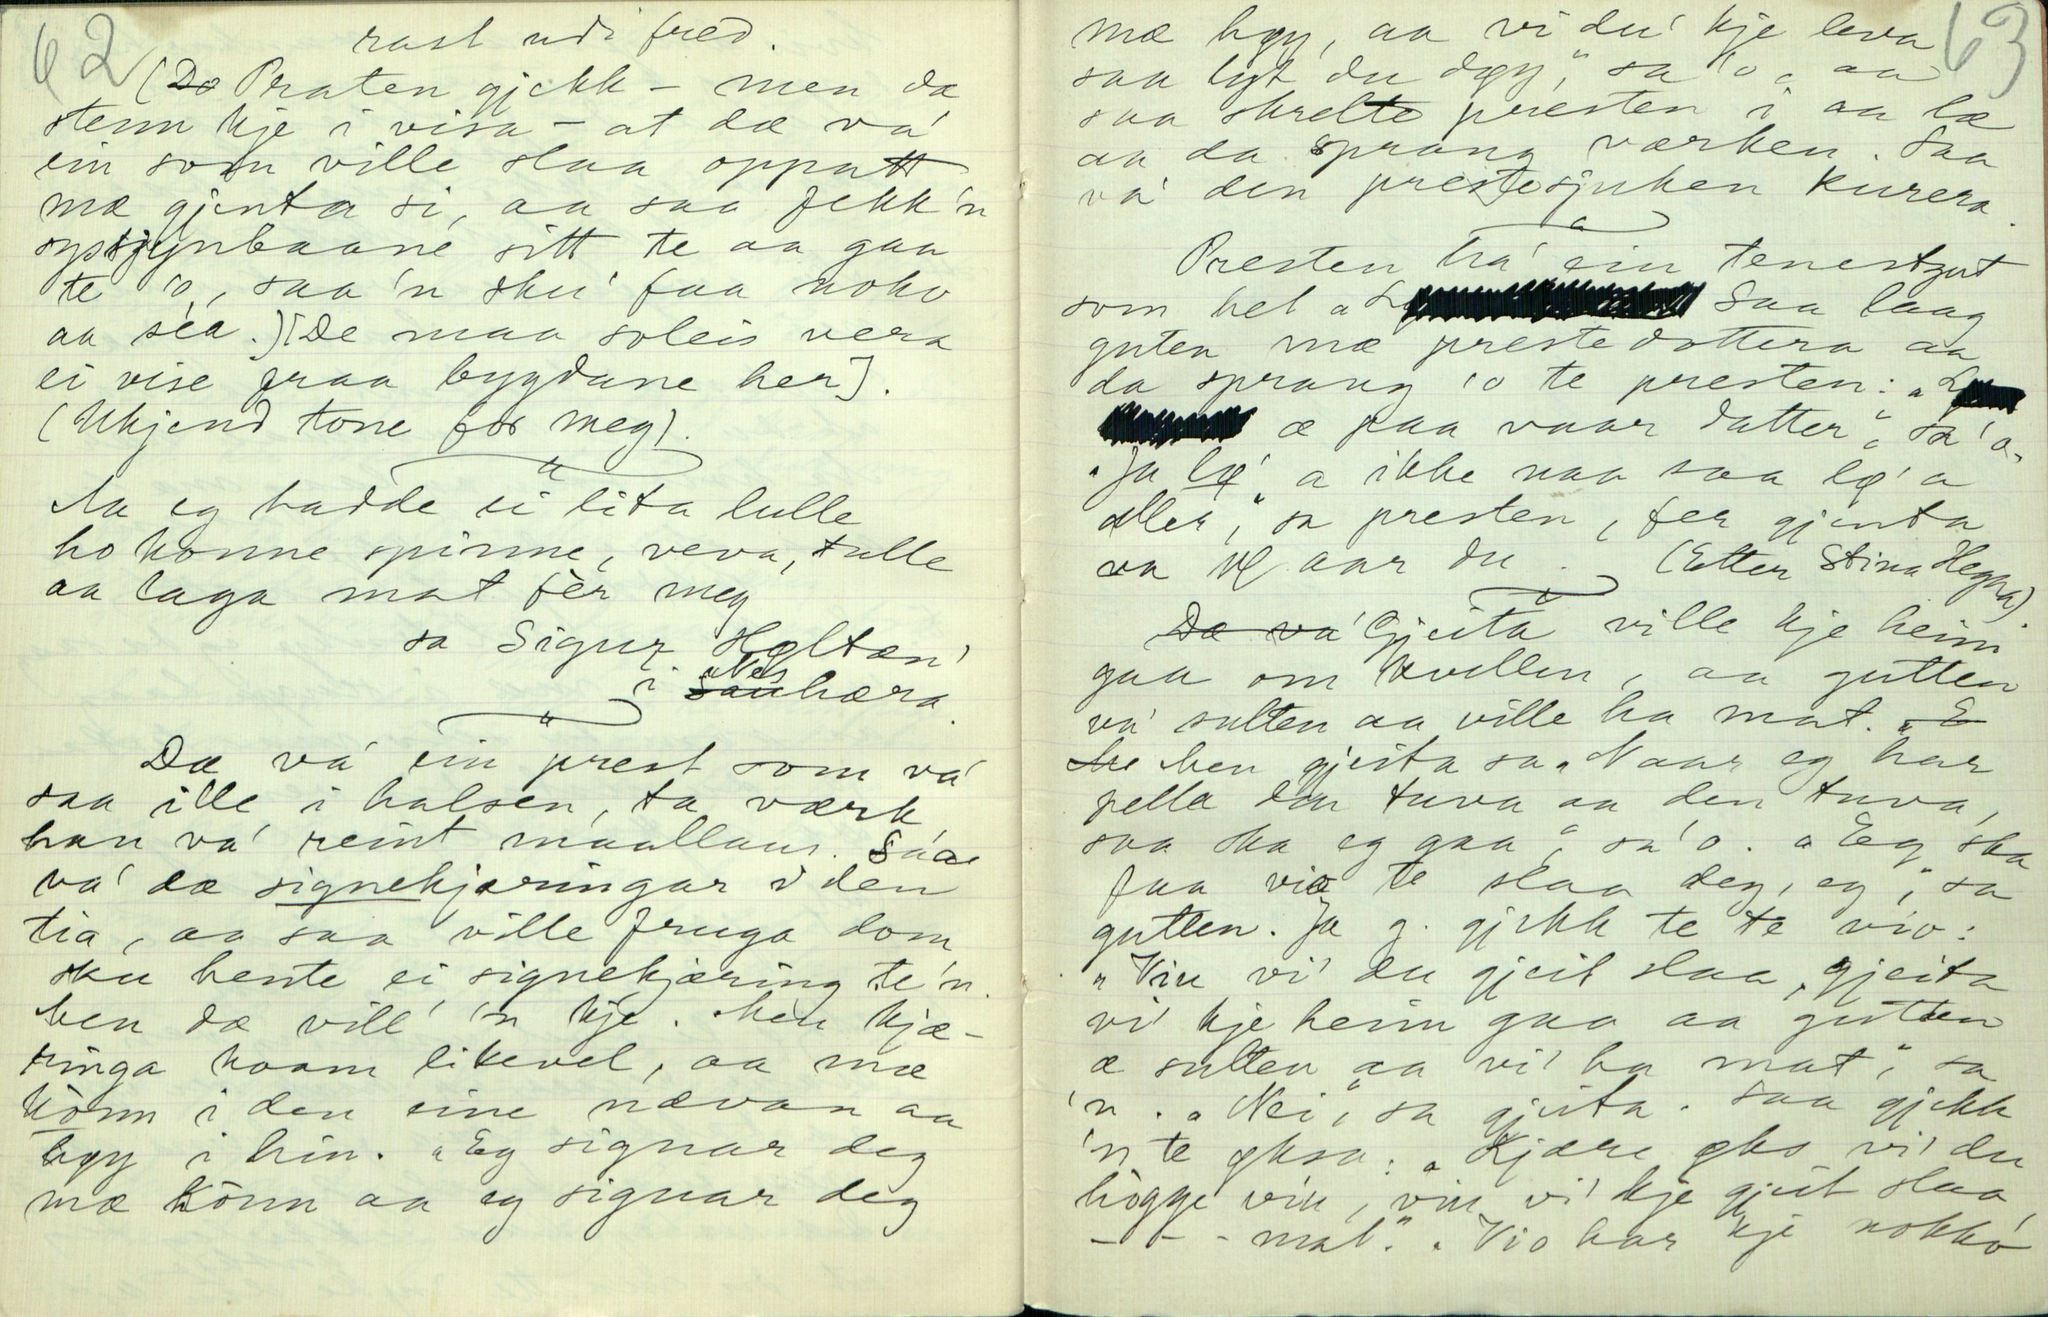 62
rast udi fred.
(Do Praten gjekk – men dæ
stenn kje i visa – at dæ va'
ein som ville slaa oppatt
mæ gjenta si, aa saa fekk'n
syssjynbaane sitt te aa gaa
te 'o, saa'n sku' faa noko
aa séa.) [De maa soleis vera
ei vise fraa bygdane her].
(Ukjend tone for meg).
Aa eg hadde ei lita lulle
ho konne spinne, veva, tulle
aa laga mat fèr meg
sa Sigur Høltæn'
i Nes
Sauhæra.
Dæ va' ein prest som va'
saa ille i halsen, ta værk
han va' reint maallaus. Sáa
va' dæ signekjæringar i den
tia, aa saa ville fruga dom
sku hente ei signekjæring te'n.
Men dæ vill' 'n kje. Men kjæ-
ringa koam likevel, aa mæ
kònn i den eine nævan aa
høy i hin. "Eg signar deg
mæ kònn aa eg signar deg
63
mæ høy, aa vi du' kje leva
saa lyt du døy," sa 'o, aa
saa skrelte presten i aa læ
aa da sprang værken. Saa
va' den prestesjuken kurera.
Presten ha' ein tenestgut
som het "L Saa laag
guten mæ prestedottera aa
da sprang 'o te presten: "L
æ paa vaar datter", sa 'o.
"Ja læ' a ikke naa saa læ' a
aller", sa presten, fer gjenta
va 14 aar du. (Etter Stina Hegna).
Dæ va' Gjeita ville kje heim
gaa om kvellen, aa gutten
va' sulten aa ville ha mat. "E
he Men gjeita sa "Naar eg har
pella den tuva aa den tuva,
saa ska eg gaa", sa'o. "Eg ska
faa vio te slaa deg, eg", sa
gutten. Ja g. gjekk te te vio:
"Viu vi' du gjeit slaa, gjeita
vi' kje heim gaa aa gutten
æ sulten aa vi' ha mat", sa
'n. "Nei", sa gjeita. Saa gjekk
'n te øksa: "Kjære øks vi' du
hògge viu, viu vi' kje gjeit slaa,
- - - mat". "Vio har kje nokkó